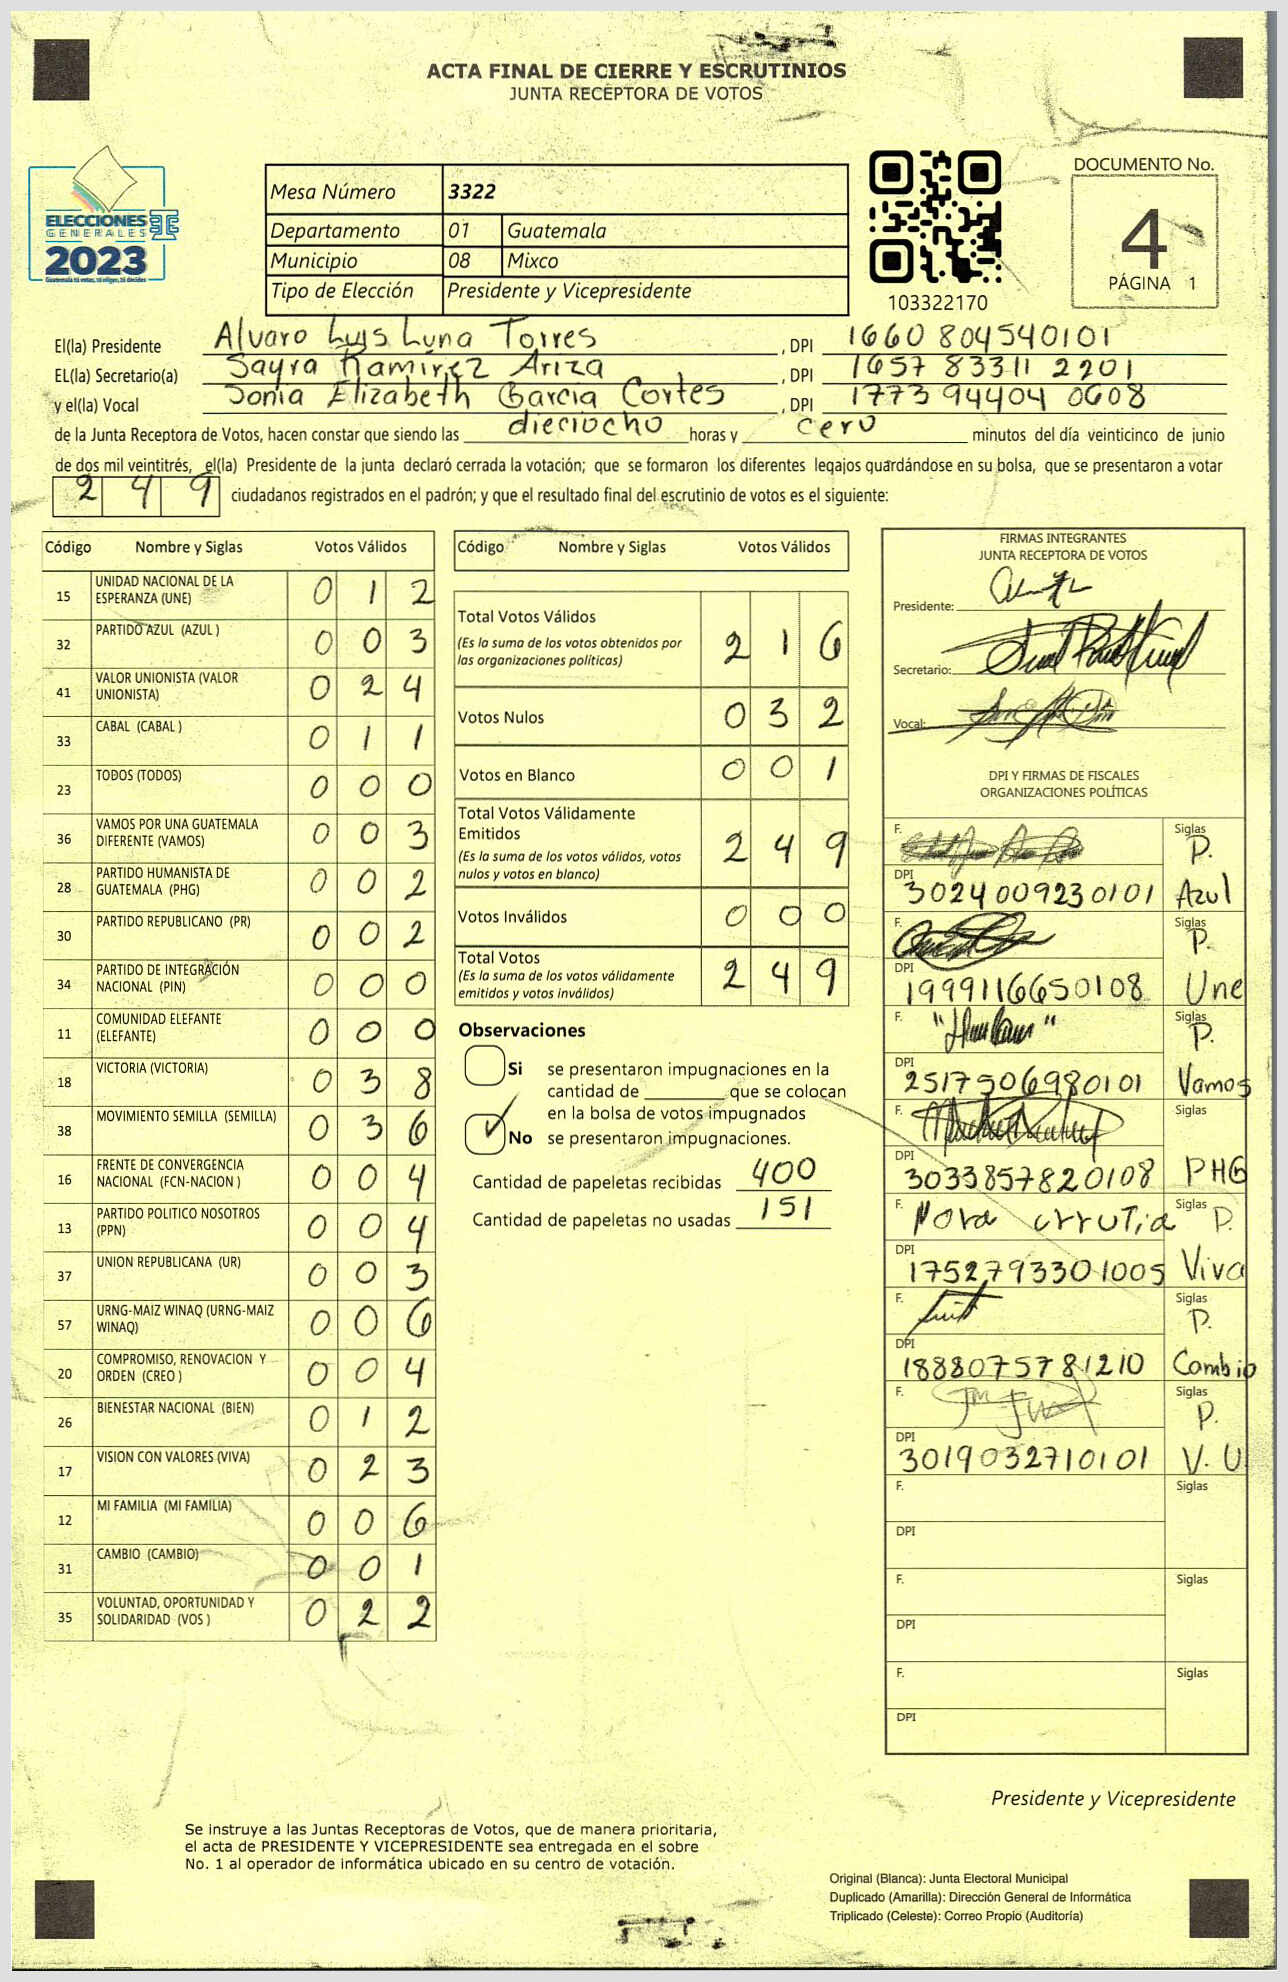 ACTA FINAL DE CIERRE Y ESCRUTINIOS
JUNTA RECEPTORA DE VOTOS
ELECCIONES
GENERALES
2023
Guatemala tú votas, tú eliges, tú decides
TSE
Mesa Número 3322
Departamento 01 Guatemala
Municipio 08 Mixco
Tipo de Elección Presidente y Vicepresidente
103322170
DOCUMENTO No.
4
PÁGINA 1
El(la) Presidente Alvaro Luis Luna Torres , DPI 1660 804540101
EL(la) Secretario(a) Sayra Ramirez Ariza , DPI 1657 83311 2201
y el(la) Vocal Sonia Elizabeth Garcia Cortes , DPI 1773 94404 0608
de la Junta Receptora de Votos, hacen constar que siendo las dieciocho horas y cero minutos del día veinticinco de junio
de dos mil veintitrés, el(la) Presidente de la junta declaró cerrada la votación; que se formaron los diferentes legajos guardándose en su bolsa, que se presentaron a votar
2 4 9 ciudadanos registrados en el padrón; y que el resultado final del escrutinio de votos es el siguiente:
Código Nombre y Siglas Votos Válidos
15 UNIDAD NACIONAL DE LA ESPERANZA (UNE) 0 1 2
32 PARTIDO AZUL (AZUL ) 0 0 3
41 VALOR UNIONISTA (VALOR UNIONISTA) 0 2 4
33 CABAL (CABAL ) 0 1 1
23 TODOS (TODOS) 0 0 0
36 VAMOS POR UNA GUATEMALA DIFERENTE (VAMOS) 0 0 3
28 PARTIDO HUMANISTA DE GUATEMALA (PHG) 0 0 2
30 PARTIDO REPUBLICANO (PR) 0 0 2
34 PARTIDO DE INTEGRACIÓN NACIONAL (PIN) 0 0 0
11 COMUNIDAD ELEFANTE (ELEFANTE) 0 0 0
18 VICTORIA (VICTORIA) 0 3 8
38 MOVIMIENTO SEMILLA (SEMILLA) 0 3 6
16 FRENTE DE CONVERGENCIA NACIONAL (FCN-NACION ) 0 0 4
13 PARTIDO POLITICO NOSOTROS (PPN) 0 0 4
37 UNION REPUBLICANA (UR) 0 0 3
57 URNG-MAIZ WINAQ (URNG-MAIZ WINAQ) 0 0 6
20 COMPROMISO, RENOVACION Y ORDEN (CREO ) 0 0 4
26 BIENESTAR NACIONAL (BIEN) 0 1 2
17 VISION CON VALORES (VIVA) 0 2 3
12 MI FAMILIA (MI FAMILIA) 0 0 6
31 CAMBIO (CAMBIO) 0 0 1
35 VOLUNTAD, OPORTUNIDAD Y SOLIDARIDAD (VOS ) 0 2 2
Código Nombre y Siglas Votos Válidos
Total Votos Válidos 2 1 6
(Es la suma de los votos obtenidos por
las organizaciones políticas)
Votos Nulos 0 3 2
Votos en Blanco 0 0 1
Total Votos Válidamente
Emitidos 2 4 9
(Es la suma de los votos válidos, votos
nulos y votos en blanco)
Votos Inválidos 0 0 0
Total Votos 2 4 9
(Es la suma de los votos válidamente
emitidos y votos inválidos)
Observaciones
Si se presentaron impugnaciones en la
cantidad de ________ que se colocan
en la bolsa de votos impugnados
No se presentaron impugnaciones.
Cantidad de papeletas recibidas 400
Cantidad de papeletas no usadas 151
FIRMAS INTEGRANTES
JUNTA RECEPTORA DE VOTOS
Presidente:
Secretario:
Vocal:
DPI Y FIRMAS DE FISCALES
ORGANIZACIONES POLÍTICAS
F. Siglas P.
DPI 3024009230101 Azul
F. Siglas P.
DPI 1999116650108 Une
F. Siglas P.
DPI 2517506980101 Vamos
F. Siglas
DPI 3033857820108 PHG
F. Nora Urrutia Siglas P.
DPI 1752793301005 Viva
F. Siglas P.
DPI 1888075781210 Cambio
F. Siglas P.
DPI 3019032710101 V. U
F. Siglas
DPI
F. Siglas
DPI
F. Siglas
DPI
Presidente y Vicepresidente
Se instruye a las Juntas Receptoras de Votos, que de manera prioritaria,
el acta de PRESIDENTE Y VICEPRESIDENTE sea entregada en el sobre
No. 1 al operador de informática ubicado en su centro de votación.
Original (Blanca): Junta Electoral Municipal
Duplicado (Amarilla): Dirección General de Informática
Triplicado (Celeste): Correo Propio (Auditoría)